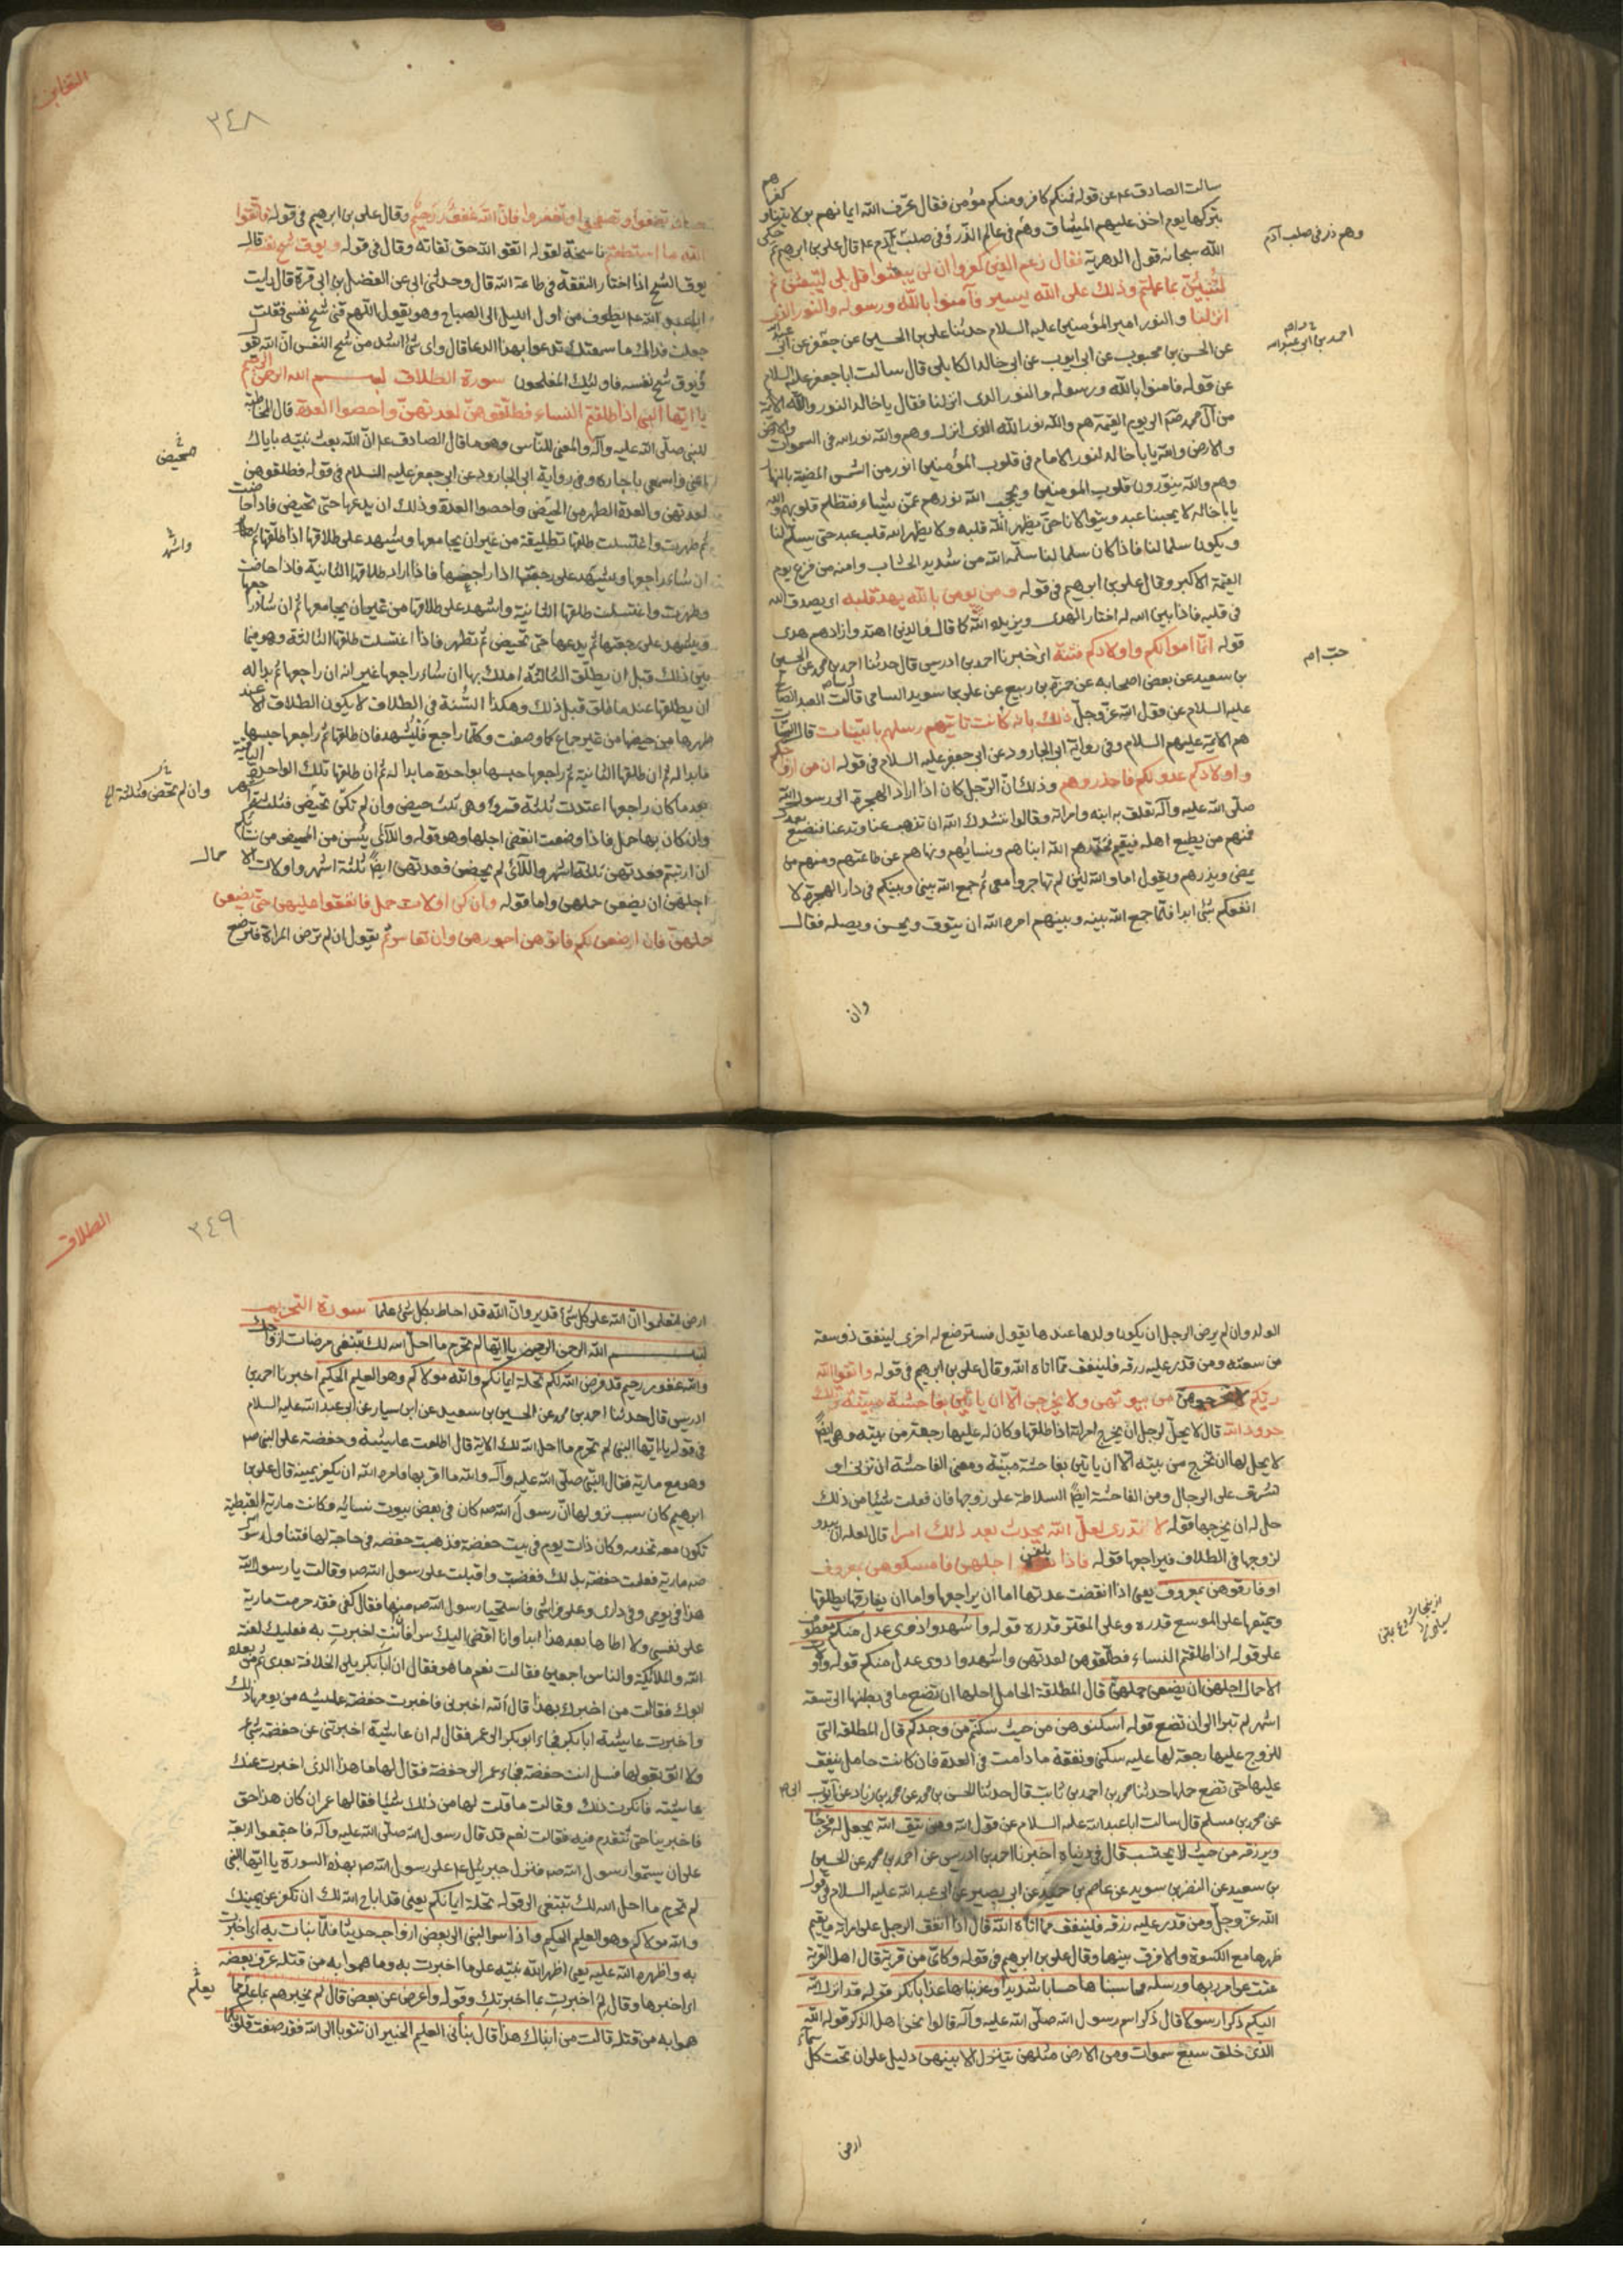 سالت الصادق عم عن قوله فمنكم كافر ومنكم مؤمن فقال عرف الله ايمانهم بولايتنا و
كفرهم
بتركها يوم اخذ عليهم الميثاق وهم في عالم الذر وفي صلب آدم عم قال علي بن ابرهيم ثم حكى
وهم ذر في صلب آدم
الله سبحانه قول الدهرية فقال زعم الذين كفروا ان لن يبعثوا قل بلى لتبعثن ثم
لتنبئن بما عملتم وذلك على الله يسير وآمنوا بالله ورسوله والنور الذي
انزلنا والنور امير المؤمنين عليه السلام حدثنا علي بن الحسين عن جعفر عن ابي عبد الله
احمد بن ابي عبد الله
عن الحسن بن محبوب عن ابي ايوب عن ابي خالد الكابلي قال سالت ابا جعفر عليه السلام
عن قوله فامنوا بالله ورسوله والنور الذي انزلنا فقال يا خالد النور والله الائمة
من آل محمد ص الى يوم القيمة هم والله نور الله الذي انزل وهم والله نور الله في السموات والارض
والارض والله يا با خالد لنور الامام في قلوب المؤمنين انور من الشمس المضيئة بالنهار
وهم والله ينورون قلوب المومنين ويحجب الله نورهم عمن يشاء فتظلم قلوبهم والله
يا با خالد لا يحبنا عبد ويتوالانا حتى يطهر الله قلبه ولا يطهر الله قلب عبد حتى يسلم لنا
ويكون سلما لنا فاذا كان سلما لنا سلمه الله من شديد الحساب وامنه من فزع يوم
القيمة الاكبر وقال علي بن ابرهيم في قوله ومن يومن بالله يهد قلبه اى يصدق الله
في قلبه فاذا بين الله له اختار الهدى ويزيده الله كما قال والذين اهتدوا زادهم هدى
قوله انما اموالكم واولادكم فتنة اى حب اخبرنا احمد بن ادريس قال حدثنا احمد بن محمد عن الحسين
حب ام
بن سعيد عن بعض اصحابه عن حمزة بن ربيع عن علي بن سويد السامي قال سالت العبد الصالح
عليه السلام عن قول الله عز وجل ذلك بانه كانت تاتيهم رسلهم بالبينات قال البينات
هم الائمة عليهم السلام وفي رواية ابي الجارود عن ابي جعفر عليه السلام في قوله ان من ازواجكم
واولادكم عدوا لكم فاحذروهم وذلك ان الرجل كان اذا اراد الهجرة الى رسول الله
صلى الله عليه وآله تعلق به ابنه وامراته وقالوا ننشدك الله ان تذهب عنا وتدعنا فنضيع بعدك
فمنهم من يطيع اهله فيقيم فحذرهم الله ابناهم ونسائهم ونهاهم عن طاعتهم ومنهم من
يمضي ويذرهم ويقول اما والله لئن لم تهاجروا معي ثم جمع الله بيني وبينكم في دار الهجرة لا
انفعكم بشئ ابدا فلما جمع الله بينه وبينهم امره الله ان يتوق ويحسن ويصله فقال
وان
التغابن
٣٤٨
وان تعفوا وتصفحوا وتغفروا فان الله غفور رحيم وقال علي بن ابرهيم في قوله فاتقوا
الله ما استطعتم ناسخة لقوله اتقوا الله حق تقاته وقال في قوله ومن يوق شح نفسه قال
يوق الشح اذا اختار النفقة في طاعة الله قال وحدثني ابي عن الفضل بن ابي قرة قال رايت
ابا عبد الله عم يطوف من اول الليل الى الصباح وهو يقول اللهم قني شح نفسي فقلت
جعلت فداك ما سمعتك تدعوا بهذا الدعا قال واى شئ اشد من شح النفس ان الله يقول
ومن يوق شح نفسه فاوليك المفلحون سورة الطلاق بسم الله الرحمن الرحيم
يا ايها النبي اذا طلقتم النساء فطلقوهن لعدتهن واحصوا العدة قال المخاطبة
للنبي صلى الله عليه وآله والمعنى للناس وهو ما قال الصادق عم ان الله بعث نبيه باياك
اعني واسمعي يا جاره وفي رواية ابي الجارود عن ابي جعفر عليه السلام في قوله فطلقوهن
محيض
لعدتهن والعدة الطهر من الحيض واحصوا العدة وذلك ان يدعها حتى تحيض فاذا حاضت
ثم طهرت واغتسلت طلقها تطليقة من غير ان يجامعها ويشهد على طلاقها اذا طلقها ثم
واشهد
ان شاء راجعها ويشهد على رجعتها اذا راجعها فاذا اراد طلاقها الثانية فاذا حاضت
وطهرت واغتسلت طلقها الثانية واشهد على طلاقها من غير ان يجامعها ثم ان شاء راجعها
ويشهد على رجعتها ثم يدعها حتى تحيض ثم تطهر فاذا اغتسلت طلقها الثالثة وهو فيما
بين ذلك قبل ان يطلق الثالثة املك بها ان شاء راجعها غير انه ان راجعها ثم بدا له
ان يطلقها عند ما طلق قبل ذلك وهكذا السنة في الطلاق لا يكون الطلاق الا عند
طهرها من حيضها من غير جماع كما وصفت وكلما راجع فليشهد فان طلقها ثم راجعها حبسها
ما بدا له ثم ان طلقها الثانية ثم راجعها حبسها بواحدة ما بدا له ثم ان طلقها تلك الواحدة
وان لم تحض فثلاثة الخ
بعد ما كان راجعها اعتدت ثلثة قروء وهي ثلث حيض وان لم تكن تحيض فثلثة اشهر
وان كان بها حمل فاذا وضعت انقضى اجلها وهو قوله واللائي يئسن من المحيض من نسائكم
ان ارتبتم فعدتهن ثلثة اشهر واللائي لم يحضن فعدتهن ايضا ثلثة اشهر واولات الاحمال
اجلهن ان يضعن حملهن واما قوله وان كن اولات حمل فانفقوا عليهن حتى يضعن
حملهن فان ارضعن لكم فآتوهن اجورهن وان تعاسرتم يقول ان لم ترض المراة فترضع
الولد وان لم يرض الرجل ان يكون ولدها عندها يقول فسترضع له اخرى لينفق ذو سعة
من سعته ومن قدر عليه رزقه فلينفق مما اتاه الله وقال علي بن ابرهيم في قوله واتقوا الله
ربكم لا تخرجوهن من بيوتهن ولا يخرجن الا ان ياتين بفاحشة مبينة وتلك
حدود الله قال لا يحل لرجل ان يخرج امراته اذا طلقها وكان له عليها رجعة من بيته وهي ايضا
لا يحل لها ان تخرج من بيته الا ان ياتين بفاحشة مبينة ومعنى الفاحشة ان تزني او
تشرف على الرجال ومن الفاحشة ايضا السلاطة على زوجها فان فعلت شيئا من ذلك
حل له ان يخرجها قوله لا تدري لعل الله يحدث بعد ذلك امرا قال لعله ان يبدو
لزوجها في الطلاق فيراجعها قوله فاذا بلغن اجلهن فامسكوهن بمعروف
او فارقوهن بمعروف يعني اذا انقضت عدتها اما ان يراجعها واما ان يفارقها يطلقها
ويمتعها على الموسع قدره وعلى المقتر قدره قوله واشهدوا ذوى عدل منكم معطوف
على قوله اذا طلقتم النساء فطلقوهن لعدتهن واشهدوا ذوى عدل منكم قوله واولات
الاحمال اجلهن ان يضعن حملهن قال المطلقة الحامل اجلها ان تضع ما في بطنها الى تسعة
اشهر لم تبرا الى ان تضع قوله اسكنوهن من حيث سكنتم من وجدكم قال المطلقة التي
للزوج عليها رجعة لها عليه سكنى ونفقة ما دامت في العدة فان كانت حامل ينفق
عليها حتى تضع حملها حدثنا محمد بن احمد بن ثابت قال حدثنا الحسن بن محمد عن محمد بن زياد عن ايوب
عن محمد بن مسلم قال سالت ابا عبد الله عليه السلام عن قول الله ومن يتق الله يجعل له مخرجا
ويرزقه من حيث لا يحتسب قال في دنياه اخبرنا احمد بن ادريس عن احمد بن محمد عن الحسين
بن سعيد عن النضر بن سويد عن عاصم بن حميد عن ابي بصير عن ابي عبد الله عليه السلام في قول
الله عز وجل ومن قدر عليه رزقه فلينفق مما اتاه الله قال اذا انفق الرجل على امراته ما يقيم
ظهرها مع الكسوة والا فرق بينهما وقال علي بن ابرهيم في قوله وكاين من قرية قال اهل القرية
عتت عن امر ربها ورسله فحاسبناها حسابا شديدا وعذبناها عذابا نكرا قوله قد انزل الله
اليكم ذكرا رسولا قال ذكر اسم رسول الله صلى الله عليه وآله قالوا نحن اهل الذكر قوله الله
الذي خلق سبع سموات ومن الارض مثلهن يتنزل الامر بينهن دليل على ان تحت كل سماء
ارض
الطلاق
٣٤٩
ارض لتعلموا ان الله على كل شئ قدير وان الله قد احاط بكل شئ علما سورة التحريم
بسم الله الرحمن الرحيم يا ايها لم تحرم ما احل الله لك تبتغي مرضات ازواجك
والله غفور رحيم قد فرض الله لكم تحلة ايمانكم والله مولاكم وهو العليم الحكيم اخبرنا احمد بن
ادريس قال حدثنا احمد بن محمد عن الحسين بن سعيد عن ابن سيار عن ابي عبد الله عليه السلام
في قوله يا ايها النبي لم تحرم ما احل الله لك الاية قال اطلعت عايشة وحفصة على النبي ص
وهو مع مارية فقال النبي صلى الله عليه وآله والله ما اقربها فامره الله ان يكفر يمينه قال علي بن
ابرهيم كان سبب نزولها ان رسول الله ص كان في بعض بيوت نسائه وكانت مارية القبطية
تكون معه تخدمه وكان ذات يوم في بيت حفصة فذهبت حفصة في حاجة لها فتناول رسول الله
ص مارية فعلمت حفصة بذلك فغضبت واقبلت على رسول الله ص وقالت يا رسول الله
هذا في يومي وفي داري وعلى فراشي فاستحيا رسول الله ص منها فقال كفى فقد حرمت مارية
على نفسي ولا اطاها بعد هذا ابدا وانا افضي اليك سرا فان انت اخبرت به فعليك لعنة
الله والملائكة والناس اجمعين فقالت نعم ما هو فقال ان ابا بكر يلي الخلافة بعدي ثم من بعده
ابوك فقالت من اخبرك بهذا قال الله اخبرني فاخبرت حفصة عايشة من يومها ذلك
واخبرت عايشة ابا بكر فجاء ابو بكر الى عمر فقال له ان عايشة اخبرتني عن حفصة بشئ
ولا اثق بقولها فسل انت حفصة فجاء عمر الى حفصة فقال لها ما هذا الذي اخبرت عنك
عايشة فانكرت ذلك وقالت ما قلت لها من ذلك شيئا فقال لها عمر ان كان هذا حق
فاخبرينا حتى نتقدم فيه فقالت نعم قد قال رسول الله صلى الله عليه وآله فاجتمعوا اربعة
على ان يسموا رسول الله ص فنزل جبرئيل عم على رسول الله ص بهذه السورة يا ايها النبي
لم تحرم ما احل الله لك تبتغي الى قوله تحلة ايمانكم يعني قد اباح الله لك ان تكفر عن يمينك
والله مولاكم وهو العليم الحكيم واذ اسر النبي الى بعض ازواجه حديثا فلما نبات به اى اخبرت
به واظهره الله عليه يعني اظهر الله نبيه على ما اخبرت به وما هموا به من قتله عرف بعضه
اى اخبرها وقال لم اخبرت بما اخبرتك وقوله واعرض عن بعض قال لم يخبرهم بما علم مما
يعلم
هموا به من قتله قالت من انباك هذا قال نبأني العليم الخبير ان تتوبا الى الله فقد صغت قلوبكما